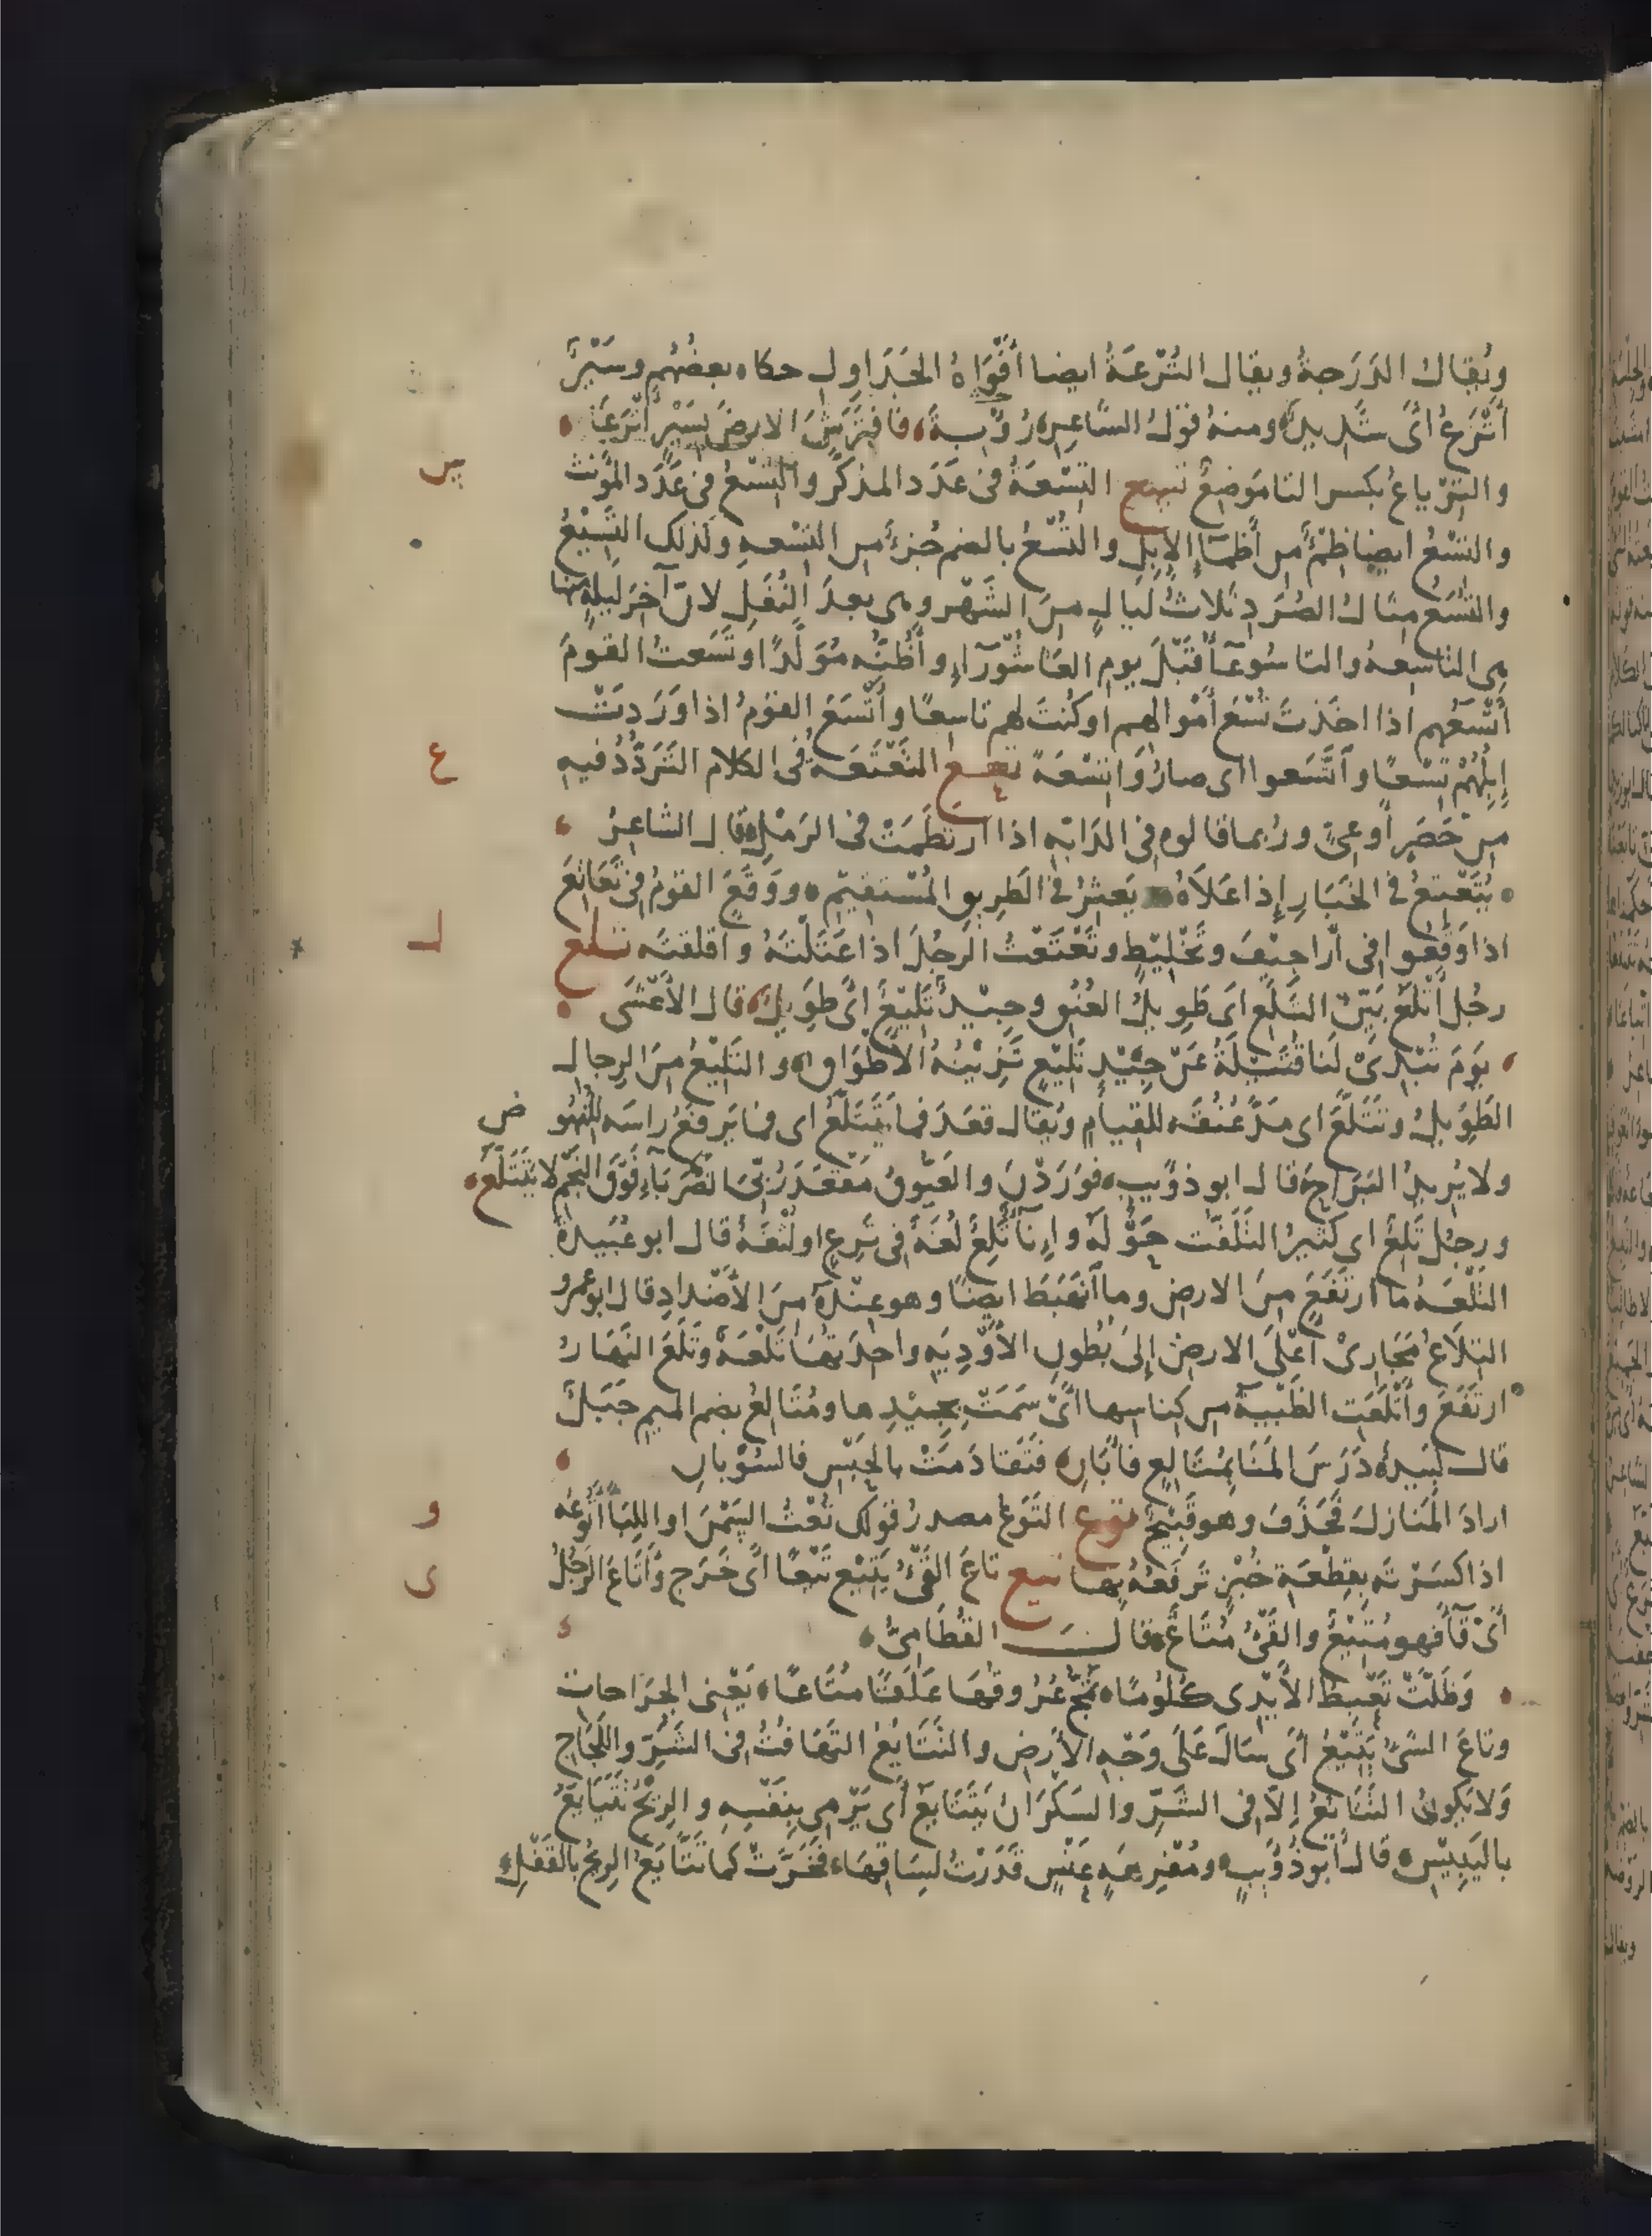 ويُقال الدَرَجةُ ويقال التُرْعَةُ ايضا أفْوَاهُ الجَدَاوِل حكاه بعضُهُم وسَيْرٌ
أَتْرَعُ أىْ شَدِيدٌ ومنهُ قَوْلُ الشَّاعِرِ رُؤْبة فافْتَرَشَ الارضَ بِسَيْرٍ أَتْرَعَا
والتِرْياعُ بكسر التا مَوضِعٌ تسع التِسْعَةُ فى عَدَد المذكَّر والتِسْعُ فى عَدَد المؤنث
س
والتِسْعُ ايضا ظِمْءٌ من أَظْمَآءِ الإِبِلِ والتُسْعُ بالضم جُزءٌ من التِسْعهِ وكَذلك التَسِيْعُ
والتُسَعُ مثالُ الصُرَدِ ثلاثُ لَيالٍ مِنَ الشَهْر وهى بعدَ النُفَلِ لانّ آخِرَ لَيلَةٍ منها
هى التاسِعهُ والتاسُوعَآءُ قَبْلَ يوم العَاشُورَآءِ وأَظُنُّه مُوَلَّدًا وتَسَعتُ القومَ
أَتْسَعُهم اذا اخَذتَ تُسْعَ أَمْوالهم اوكُنتَ لهم تاسِعًا وأَتْسَعَ القَوْمُ اذا وَرَدتْ
إِبِلُهُمْ تِسْعًا وأَتْسَعوا اى صارُوا تِسْعَةً تعع التَعْتَعَةُ فى الكلام التَرَدُّدُ فيهِ
ع
مِنْ حَصَرٍ أوعِىٍّ ورُبما قالوه فى الدَابّهِ اذا ارتطَمَتْ فى الرَمْلِ قال الشاعِرُ
يُتَعْتِعُ فى الخَبَارِ إِذا عَلاَهُ يَعثِرُ فى الطَرِيقِ المُسْتقِيمِ ووَقَعَ القومُ فى تَعَاتِعَ
اذا وَقَعوا فى أَراجِيْفَ وتَخْلِيْطٍ وتَعْتَعْتُ الرَجُلَ اذا عَتَلْتَهُ واقلقتَه تلع
ل
رجُل أَتْلَعُ بَيّنُ التَلَعِ اى طَوِيلُ العُنُقِ وجِيْدٌ تَلِيْعٌ أىْ طَوِيلٌ قال الأَعْشَى
يَومَ تُبْدِىْ لنا قُتَيْلَةُ عَنْ جِيْدٍ تَلِيْعٍ تَزِيْنُهُ الأَطْوَاق والتَلِيْعُ مِنَ الرِجال
الطَوِيلُ وتَتَلَّعَ اى مَدَّ عُنُقَه للقيام ويُقال قعَدَ فمايَتَتَلَّعُ اى فمايَرفَعُ راسَه للنُهُوض
ولا يُرِيدُ البَرَاحَ قال ابو ذؤيب فوَرَدْنَ والعَيُّوقُ مَقعَدَ رَابِئِ الضُرَبَآءِ فَوْقَ النَجْمِ لا يَتَتَلَّعُ
ورجُل تَلِعٌ اى كَثيرُ التَلَفُّت حَوْلَهُ وإِنآءٌ تَلِعٌ لُغَةٌ فى تَرِعٍ اولُثْغَةٌ قال ابو عُبَيدةَ
التَلْعَهُ ما ارتَفَعَ مِنَ الارض وما انْهَبَطَ ايضًا وهو عِنْدَهُ مِنَ الأَضْدادِ قال ابو عمرو
التِلاَعُ مَجَارِىْ أعْلَى الارضِ إلى بُطونِ الأَوْدِيَهِ واحِدَتُها تَلْعَهٌ وتَلَعَ النَهَارُ
ارتَفَعَ وأَتْلَعَت الظَبْيةُ من كِناسِها اىْ سَمَتْ بجِيْدِها ومُتَالِعٌ بضم الميم جَبَلٌ
قال لَبِيدٌ دَرَسَ المَنَا بِمُتَالِعٍ فأَبَانِ فَتَقادَمَتْ بالحَبْسِ فالسُوْبانِ
ارادَ المَنَازِلَ فحَذَفَ وهو قَبِيْحٌ توع التَوْعُ مصدرُ قولك تُعْتُ السَمْنَ او اللِبَأَ أَتُوعُه
و
اذا كسَرْتَه بقِطْعَةِ خُبْزٍ تَرفَعُهُ بها تيع تاعَ القَىْءُ يَتِيْعُ تَيْعًا أىْ خَرَج وأَتَاعَ الرَجُلُ
ى
أىْ قآءَ فهو مُتِيْعٌ والقَىْءُ مُتَاعٌ قال القُطَامىُّ
وَظَلَّتْ تَعْبِطُ الأَيْدِى كُلُومًا تَمُجُّ عُرُوقُهَا عَلَقًا مُتَاعَا يَعْنِى الجِرَاحات
وتاعَ الشىءُ يَتِيْعُ اىْ سَالَ عَلَى وَجْهِ الأَرضِ والتَتَايُعُ التَهَافُتُ فى الشَرِّ واللَجَاجِ
وَلا يَكونُ التَتَايُعُ إِلاّ فى الشَرِّ والسَكْرَانُ يَتَتَايَعُ أىْ يَرْمِى بنَفْسِهِ والرِيْحُ تَتَايَعُ
باليَبِيْسِ قال أبو ذُؤَيبٍ ومُفْرِهَهٍ عَنْسٍ قَدَرْتُ لِسَاقِهَا فَخَرَّتْ كما تَتَّايَعُ الرِيحُ بالقَفْلِ